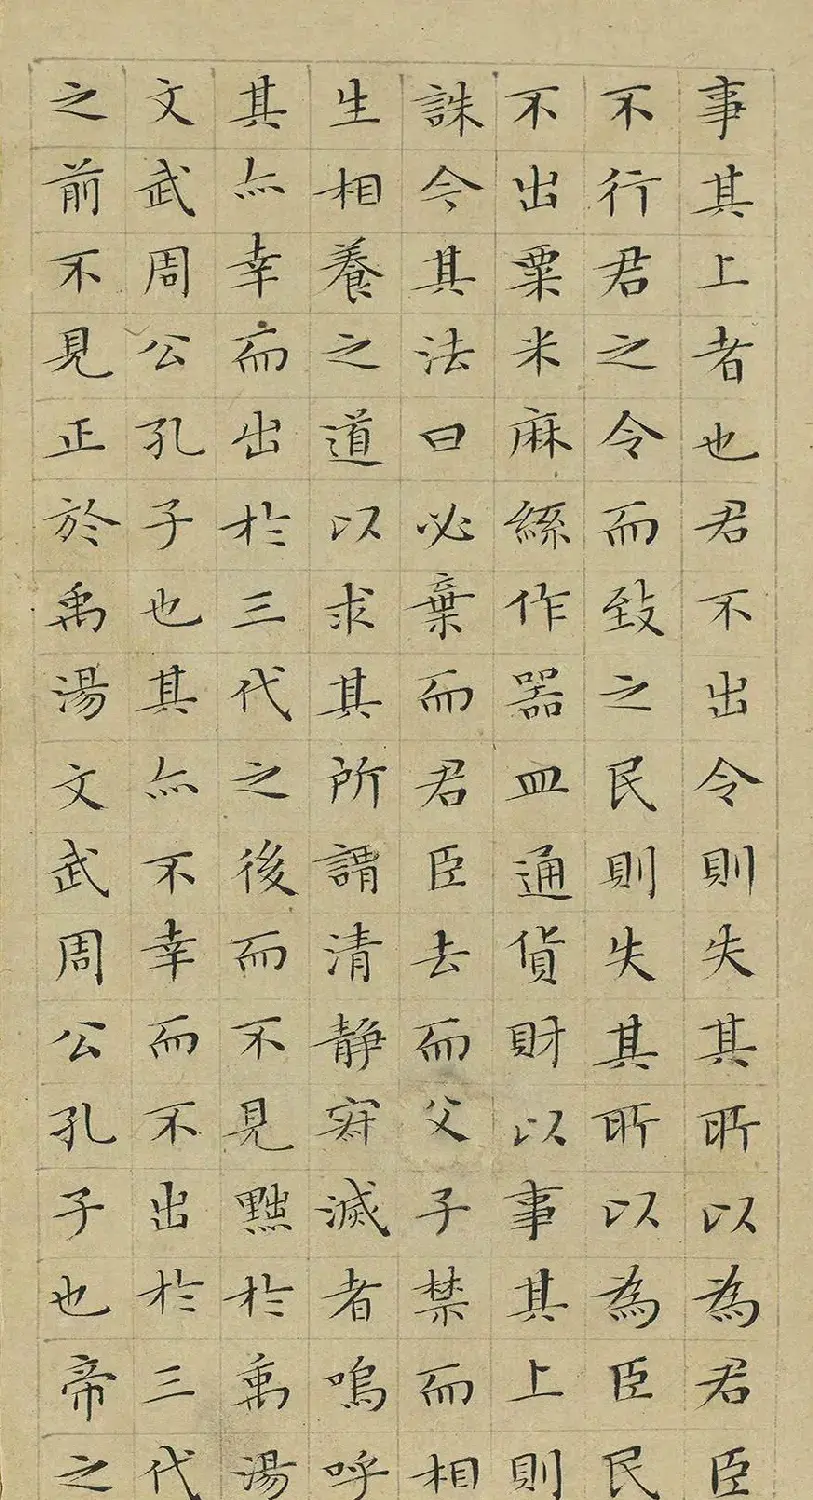 事其上者也君不出令則失其所以為君臣
不行君之令而致之民則失其所以為臣民
不出粟米麻絲作器皿通貨財以事其上則
誅今其法曰必棄而君臣去而父子禁而相
生相養之道以求其所謂清靜寂滅者嗚呼
其亦幸而出於三代之後而不見黜於禹湯
文武周公孔子也其亦不幸而不出於三代
之前不見正於禹湯文武周公孔子也帝之